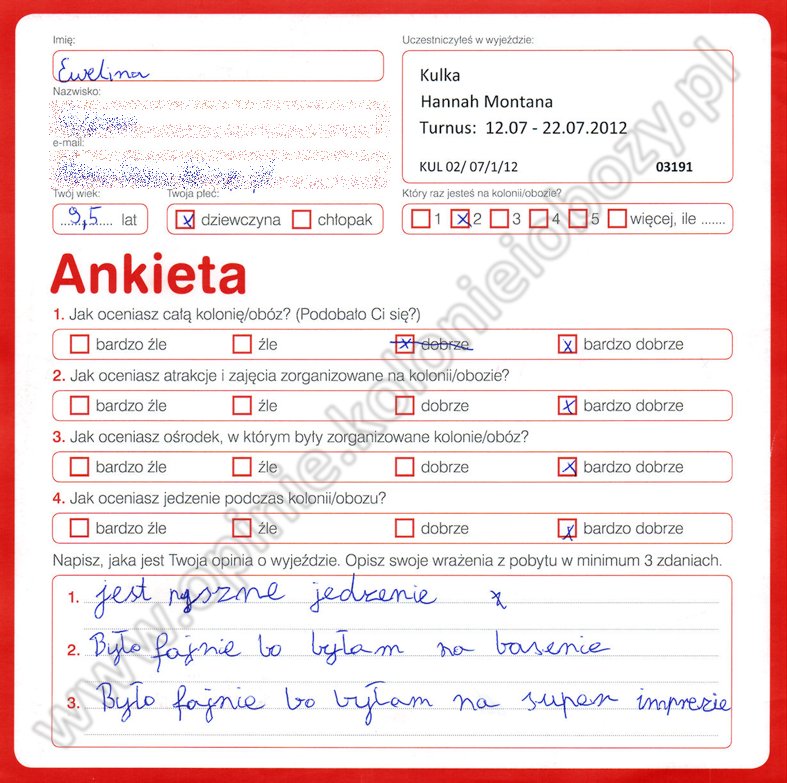 Imię:
Ewelina
Nazwisko:
e-mail:
Twój wiek:
9,5 lat
Twoja płeć:
x dziewczyna chłopak
Uczestniczyłeś w wyjeździe:
Kulka
Hannah Montana
Turnus: 12.07 - 22.07.2012
KUL 02/ 07/1/12 03191
Który raz jesteś na kolonii/obozie?
1 x 2 3 4 5 więcej, ile .......
Ankieta
1. Jak oceniasz całą kolonię/obóz? (Podobało Ci się?)
bardzo źle źle x dobrze x bardzo dobrze
2. Jak oceniasz atrakcje i zajęcia zorganizowane na kolonii/obozie?
bardzo źle źle dobrze x bardzo dobrze
3. Jak oceniasz ośrodek, w którym były zorganizowane kolonie/obóz?
bardzo źle źle dobrze x bardzo dobrze
4. Jak oceniasz jedzenie podczas kolonii/obozu?
bardzo źle źle dobrze x bardzo dobrze
Napisz, jaka jest Twoja opinia o wyjeździe. Opisz swoje wrażenia z pobytu w minimum 3 zdaniach.
1. jest pyszne jedzenie
2. Było fajnie bo byłam na basenie
3. Było fajnie bo byłam na super imprezie
www.opinie.kolonieiobozy.pl